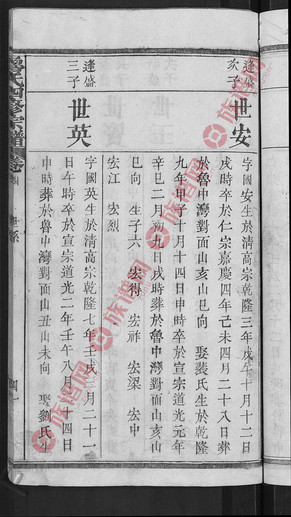 逢盛次子
世安
字國安生於清高宗乾隆三年戊午十月十二日
戌時卒於仁宗嘉慶四年己未四月二十八日葬
於魯中灣對面山亥山巳向 娶裴氏生於乾隆
九年甲子十月十四日申時卒於宣宗道光元年
辛巳二月初九日戌時葬於魯中灣對面山亥山
巳向 生子六 宏得 宏祥 宏梁 宏中
宏江 宏烈
逢盛三子
世英
字國英生於清高宗乾隆七年壬戌三月二十一
日午時卒於宣宗道光二年壬午八月十四日
申時葬於魯中灣對面山丑山未向 娶劉氏生
氏四修宗譜 卷
世系
族谱网
族谱网
族谱网